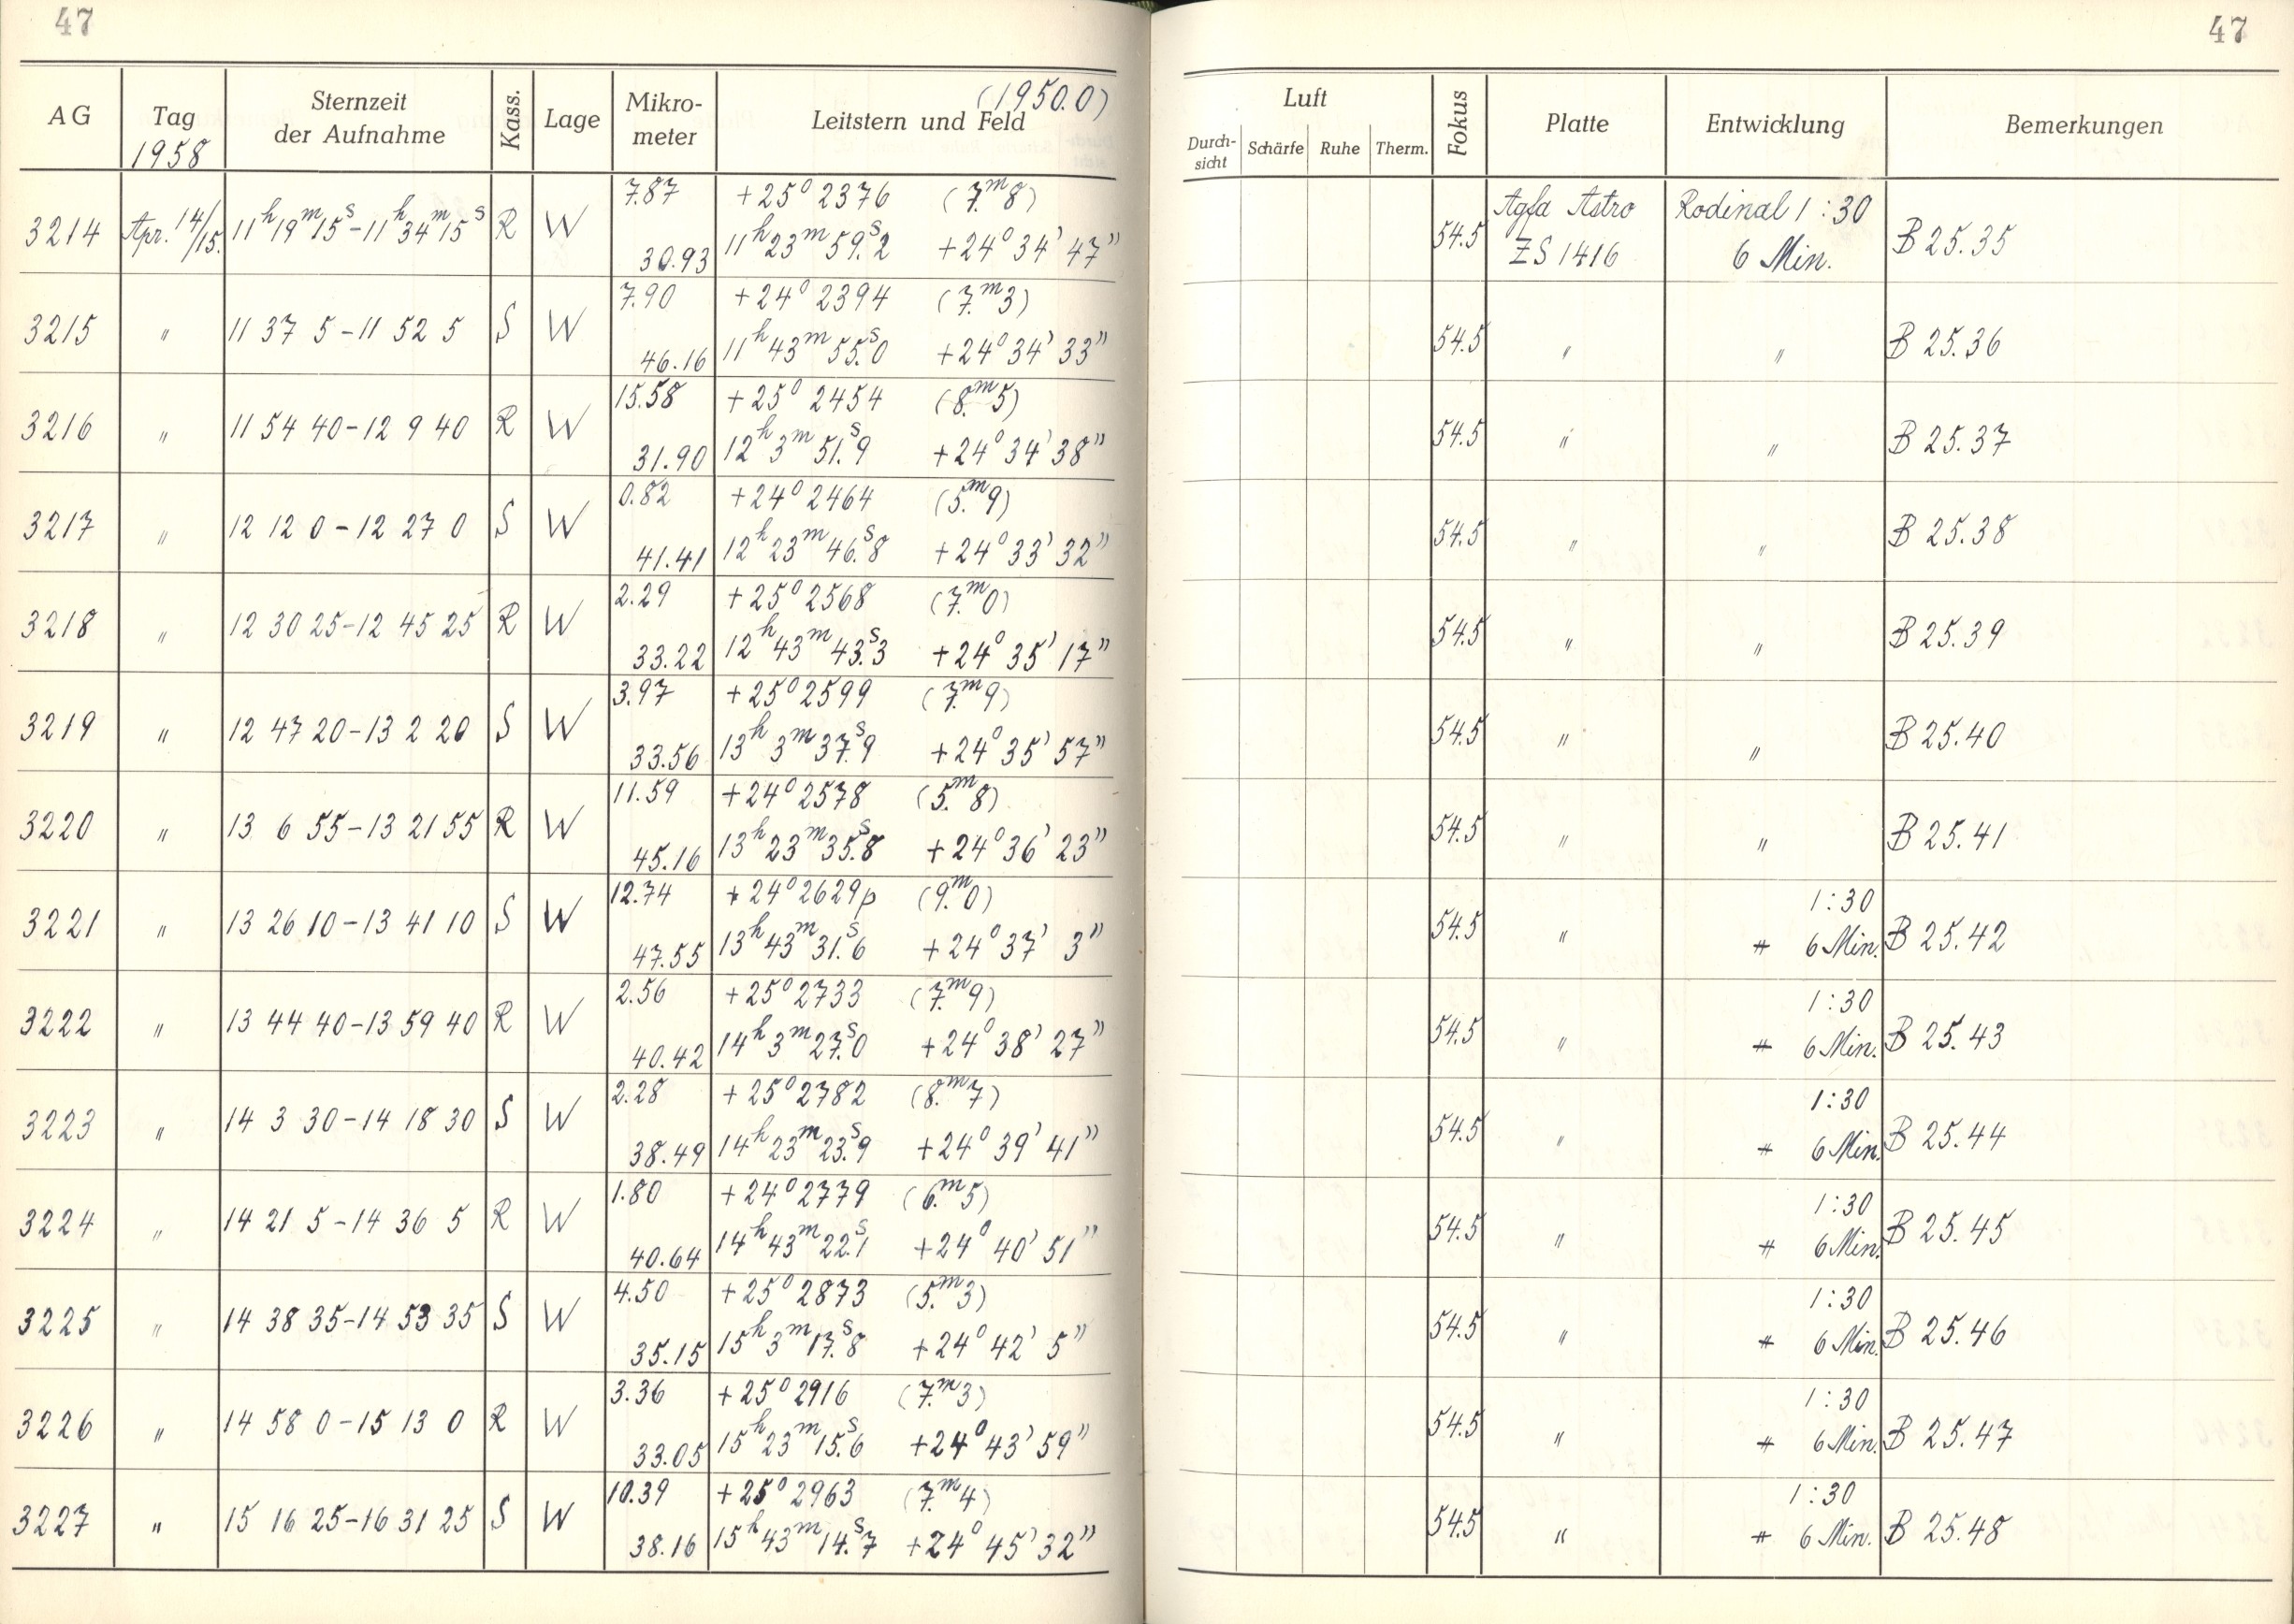 47
AG Tag 1958 Sternzeit der Aufnahme Kass. Lage Mikro-meter Leitstern und Feld (1950.0)
7.87 +25° 2376 (7.ᵐ8)
3214 Apr. 14/15. 11ʰ19ᵐ15ˢ-11ʰ34ᵐ15ˢ R W
30.93 11ʰ23ᵐ59.ˢ2 +24° 34' 47"
7.90 +24° 2394 (7.ᵐ3)
3215 " 11 37 5-11 52 5 S W
46.16 11ʰ43ᵐ55.ˢ0 +24° 34' 33"
15.58 +25° 2454 (8.ᵐ5)
3216 " 11 54 40-12 9 40 R W
31.90 12ʰ3ᵐ51.ˢ9 +24° 34' 38"
0.82 +24° 2464 (5.ᵐ9)
3217 " 12 12 0-12 27 0 S W
41.41 12ʰ23ᵐ46.ˢ8 +24° 33' 32"
2.29 +25° 2568 (7.ᵐ0)
3218 " 12 30 25-12 45 25 R W
33.22 12ʰ43ᵐ43.ˢ3 +24° 35' 17"
3.97 +25° 2599 (7.ᵐ9)
3219 " 12 47 20-13 2 20 S W
33.56 13ʰ3ᵐ37.ˢ9 +24° 35' 57"
11.59 +24° 2578 (5.ᵐ8)
3220 " 13 6 55-13 21 55 R W
45.16 13ʰ23ᵐ35.ˢ8 +24° 36' 23"
12.74 +24° 2629p (9.ᵐ0)
3221 " 13 26 10-13 41 10 S W
47.55 13ʰ43ᵐ31.ˢ6 +24° 37' 3"
2.56 +25° 2733 (7.ᵐ9)
3222 " 13 44 40-13 59 40 R W
40.42 14ʰ3ᵐ27.ˢ0 +24° 38' 27"
2.28 +25° 2782 (8.ᵐ7)
3223 " 14 3 30-14 18 30 S W
38.49 14ʰ23ᵐ23.ˢ9 +24° 39' 41"
1.80 +24° 2779 (6.ᵐ5)
3224 " 14 21 5-14 36 5 R W
40.64 14ʰ43ᵐ22.ˢ1 +24° 40' 51"
4.50 +25° 2873 (5.ᵐ3)
3225 " 14 38 35-14 53 35 S W
35.15 15ʰ3ᵐ17.ˢ8 +24° 42' 5"
3.36 +25° 2916 (7.ᵐ3)
3226 " 14 58 0-15 13 0 R W
33.05 15ʰ23ᵐ15.ˢ6 +24° 43' 59"
10.39 +25° 2963 (7.ᵐ4)
3227 " 15 16 25-16 31 25 S W
38.16 15ʰ43ᵐ14.ˢ7 +24° 45' 32"
47
Luft
Durch-sicht Schärfe Ruhe Therm. Fokus Platte Entwicklung Bemerkungen
Agfa Astro Rodinal 1:30
54.5 ZS 1416 6 Min. B 25.35
54.5 " " B 25.36
54.5 " " B 25.37
54.5 " " B 25.38
54.5 " " B 25.39
54.5 " " B 25.40
54.5 " " B 25.41
1:30
54.5 " " 6 Min. B 25.42
1:30
54.5 " " 6 Min. B 25.43
1:30
54.5 " " 6 Min. B 25.44
1:30
54.5 " " 6 Min. B 25.45
1:30
54.5 " " 6 Min. B 25.46
1:30
54.5 " " 6 Min. B 25.47
1:30
54.5 " " 6 Min. B 25.48